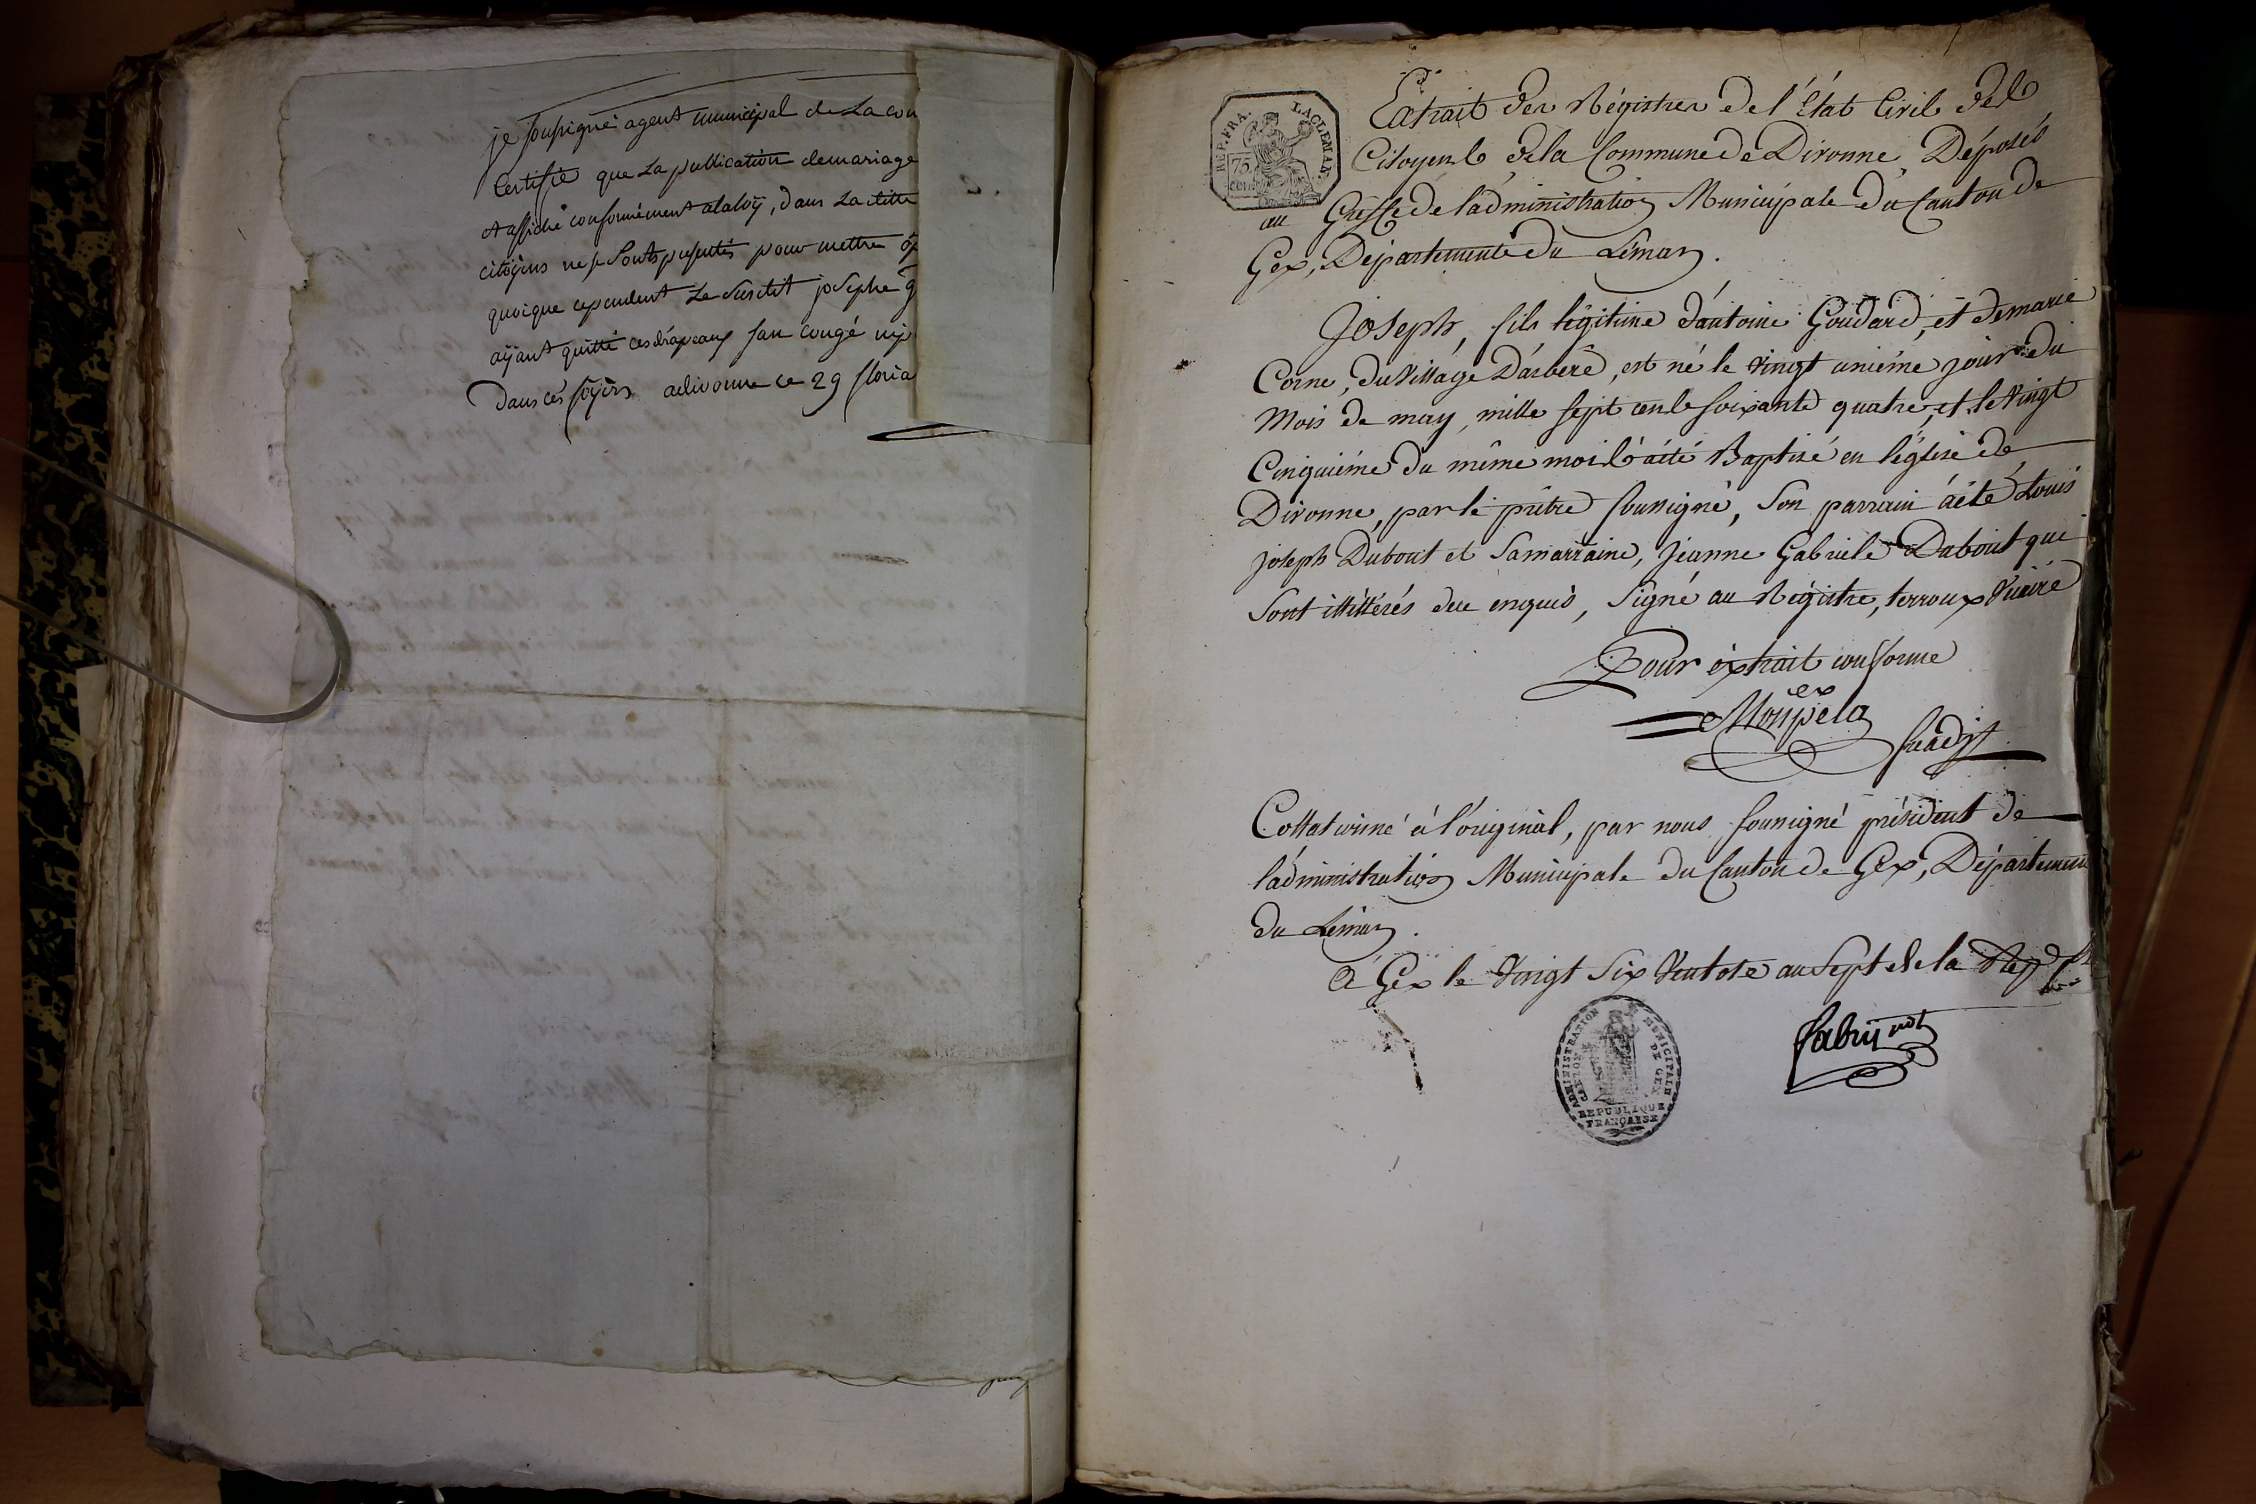 je soussigné agent municipal de La com
Certifie que La publication demariage
et affiché conformément alaloÿ, dans La ditte
citoÿens ne se Sonts presentés pour mettre op
quoique cependent Le Susdit josephe g
aÿant quitté ces drapeaux san congé
Dans cês foÿers adivonne ce 29 floria
REP. FRA.
LA CLEMAN.
75
cent
Extrait des Régistres de l'État Civil des
Citoyens de la Commune de Divonne, Déposés
au Greffe de l'administration Municipale du Canton de
Gex, Département du Léman.
Joseph, fils légitime d'antoine Goudard, et demarie
Corne, du Village D'arbére, est né le vingt uniéme jour du
Mois de may, mille sept cents soixante quatre, et le Vingt
Cinquiéme du même mois à été Baptisé en l'église de
Divonne, par le prêtre soussigné, Son parrain à été Louis
joseph Dubout et Samarraine, Jeanne Gabriele Dubout qui
Sont illittérés de ce enquis, Signé au Régistre, terroux Vicaire
Pour éxtrait conforme
Collationné à l'original, par nous soussigné président de
l'administration Municipale du Canton de Gex, Département
du Léman.
A Gex le Vingt Six Ventose an Sept de la Rep.
Fabry
ADMINISTRATION MUNICIPALE
CANTON DE GEX
REPUBLIQUE
FRANÇAISE